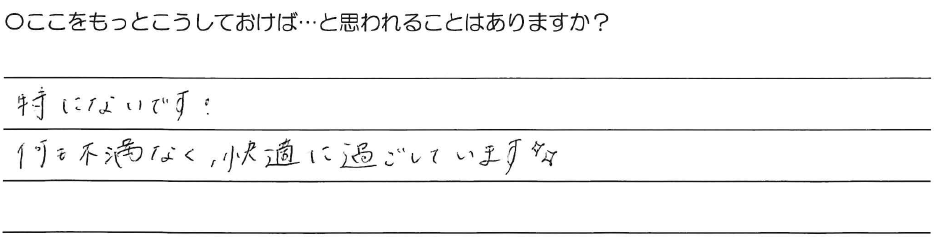 ○ここをもっとこうしておけば…と思われることはありますか？
特にないです！
何も不満なく、快適に過ごしています☆☆